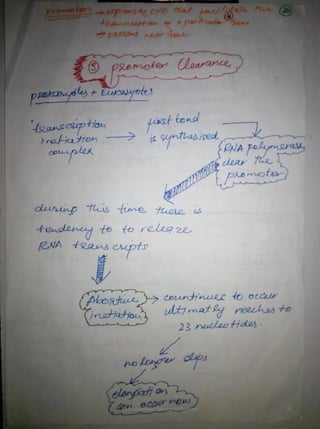 promoter → region of DNA that facilitate the
transcription of a particular gene
→ present near gene
promoter Clearance
prokaryotes + Eukaryotes
transcription
inetiation
complex
first bond
is synthesised
RNA polymerase
clear the
promoter
during this time there is
tendency to to releaze
RNA transcripts
Abortive
inetiation
→ countinues to occur
ultimatly reaches to
23 nucleotides.
no longer slips
elongation
can occur now